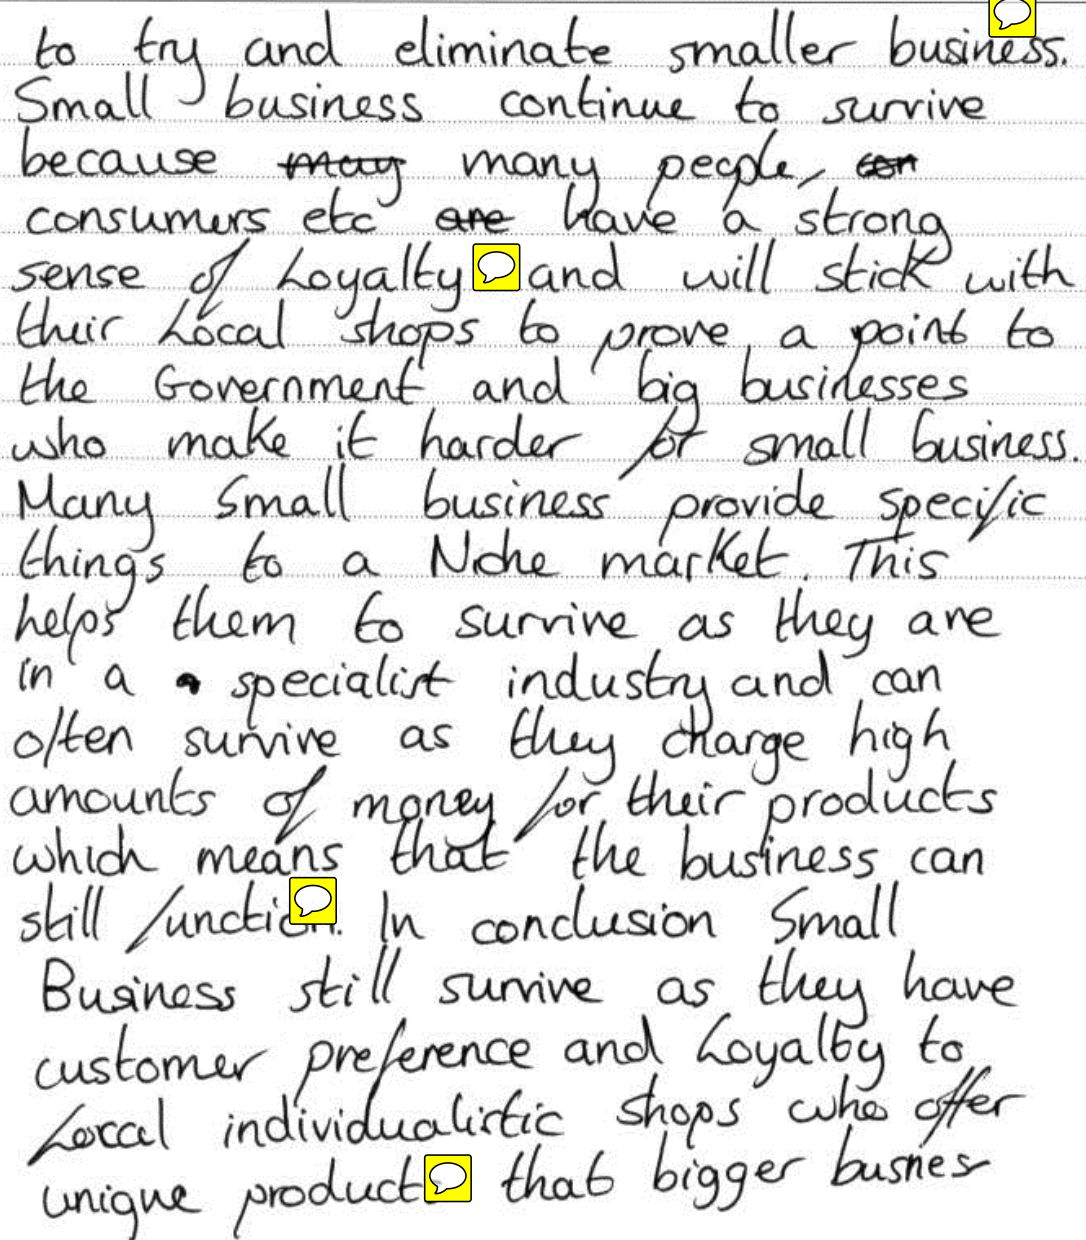 to try and eliminate smaller business.
Small business continue to survive
because may many people, con
consumers etc are have a strong
sense of Loyalty and will stick with
their Local shops to prove a point to
the Government and big businesses
who make it harder for small business.
Many Small business provide specific
things to a Niche market. This
helps them to survive as they are
in a specialist industry and can
often survive as they charge high
amounts of money for their products
which means that the business can
still function. In conclusion Small
Business still survive as they have
customer preference and Loyalty to
Local individualistic shops who offer
unique products that bigger busnes